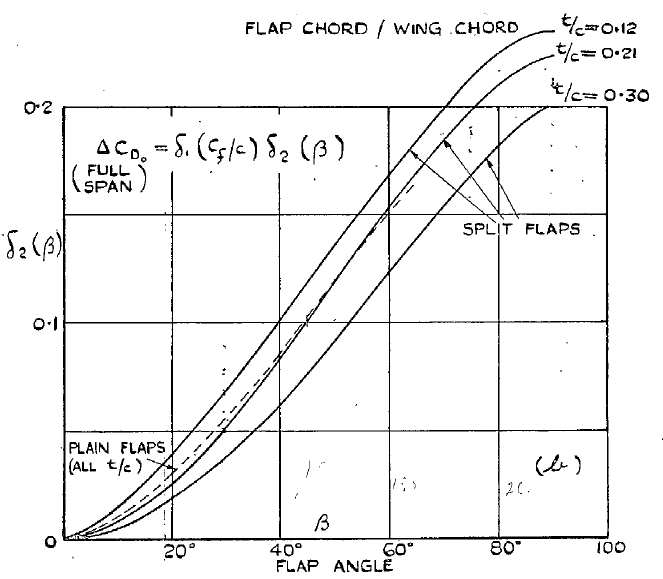 FLAP CHORD / WING CHORD
t/c=0.12
t/c=0.21
t/c=0.30
0.2
ΔC_D₀ = δ₁(C_f/c) δ₂(β)
(FULL SPAN)
SPLIT FLAPS
δ₂(β)
0.1
PLAIN FLAPS
(ALL t/c)
(b)
β
0
20°
40°
60°
80°
100
FLAP ANGLE